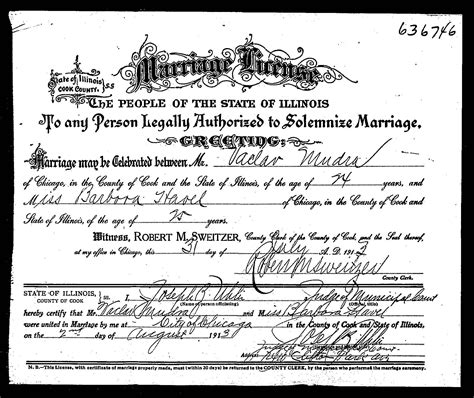 636746
Marriage License
State of Illinois
COOK COUNTY SS
The PEOPLE OF THE STATE OF ILLINOIS
To any Person Legally Authorized to Solemnize Marriage,
GREETING:
Marriage may be Celebrated between Mr. Vaclav Mudra
of Chicago, in the County of Cook and the State of Illinois, of the age of 24 years, and
Miss Barbora Havel of Chicago, in the County of Cook and
State of Illinois, of the age of 25 years.
Witness, ROBERT M. SWEITZER, County Clerk of the County of Cook, and the Seal thereof,
at my office in Chicago, this 31 day of July A. D. 1913
Robert M Sweitzer
County Clerk.
STATE OF ILLINOIS,
COUNTY OF COOK ss. I, Joseph Z. Uhlir Judge of Municipal Court
(Name of person officiating)
hereby certify that Mr. Vaclav Mudra and Miss Barbora Havel
were united in Marriage by me at City of Chicago in the County of Cook and State of Illinois,
on the 2nd day of August 1913
Judge of Municipal Court
N. B.—This License, with certificate of marriage properly made, must (within 30 days) be returned to the COUNTY CLERK, by the person who performed the marriage ceremony.